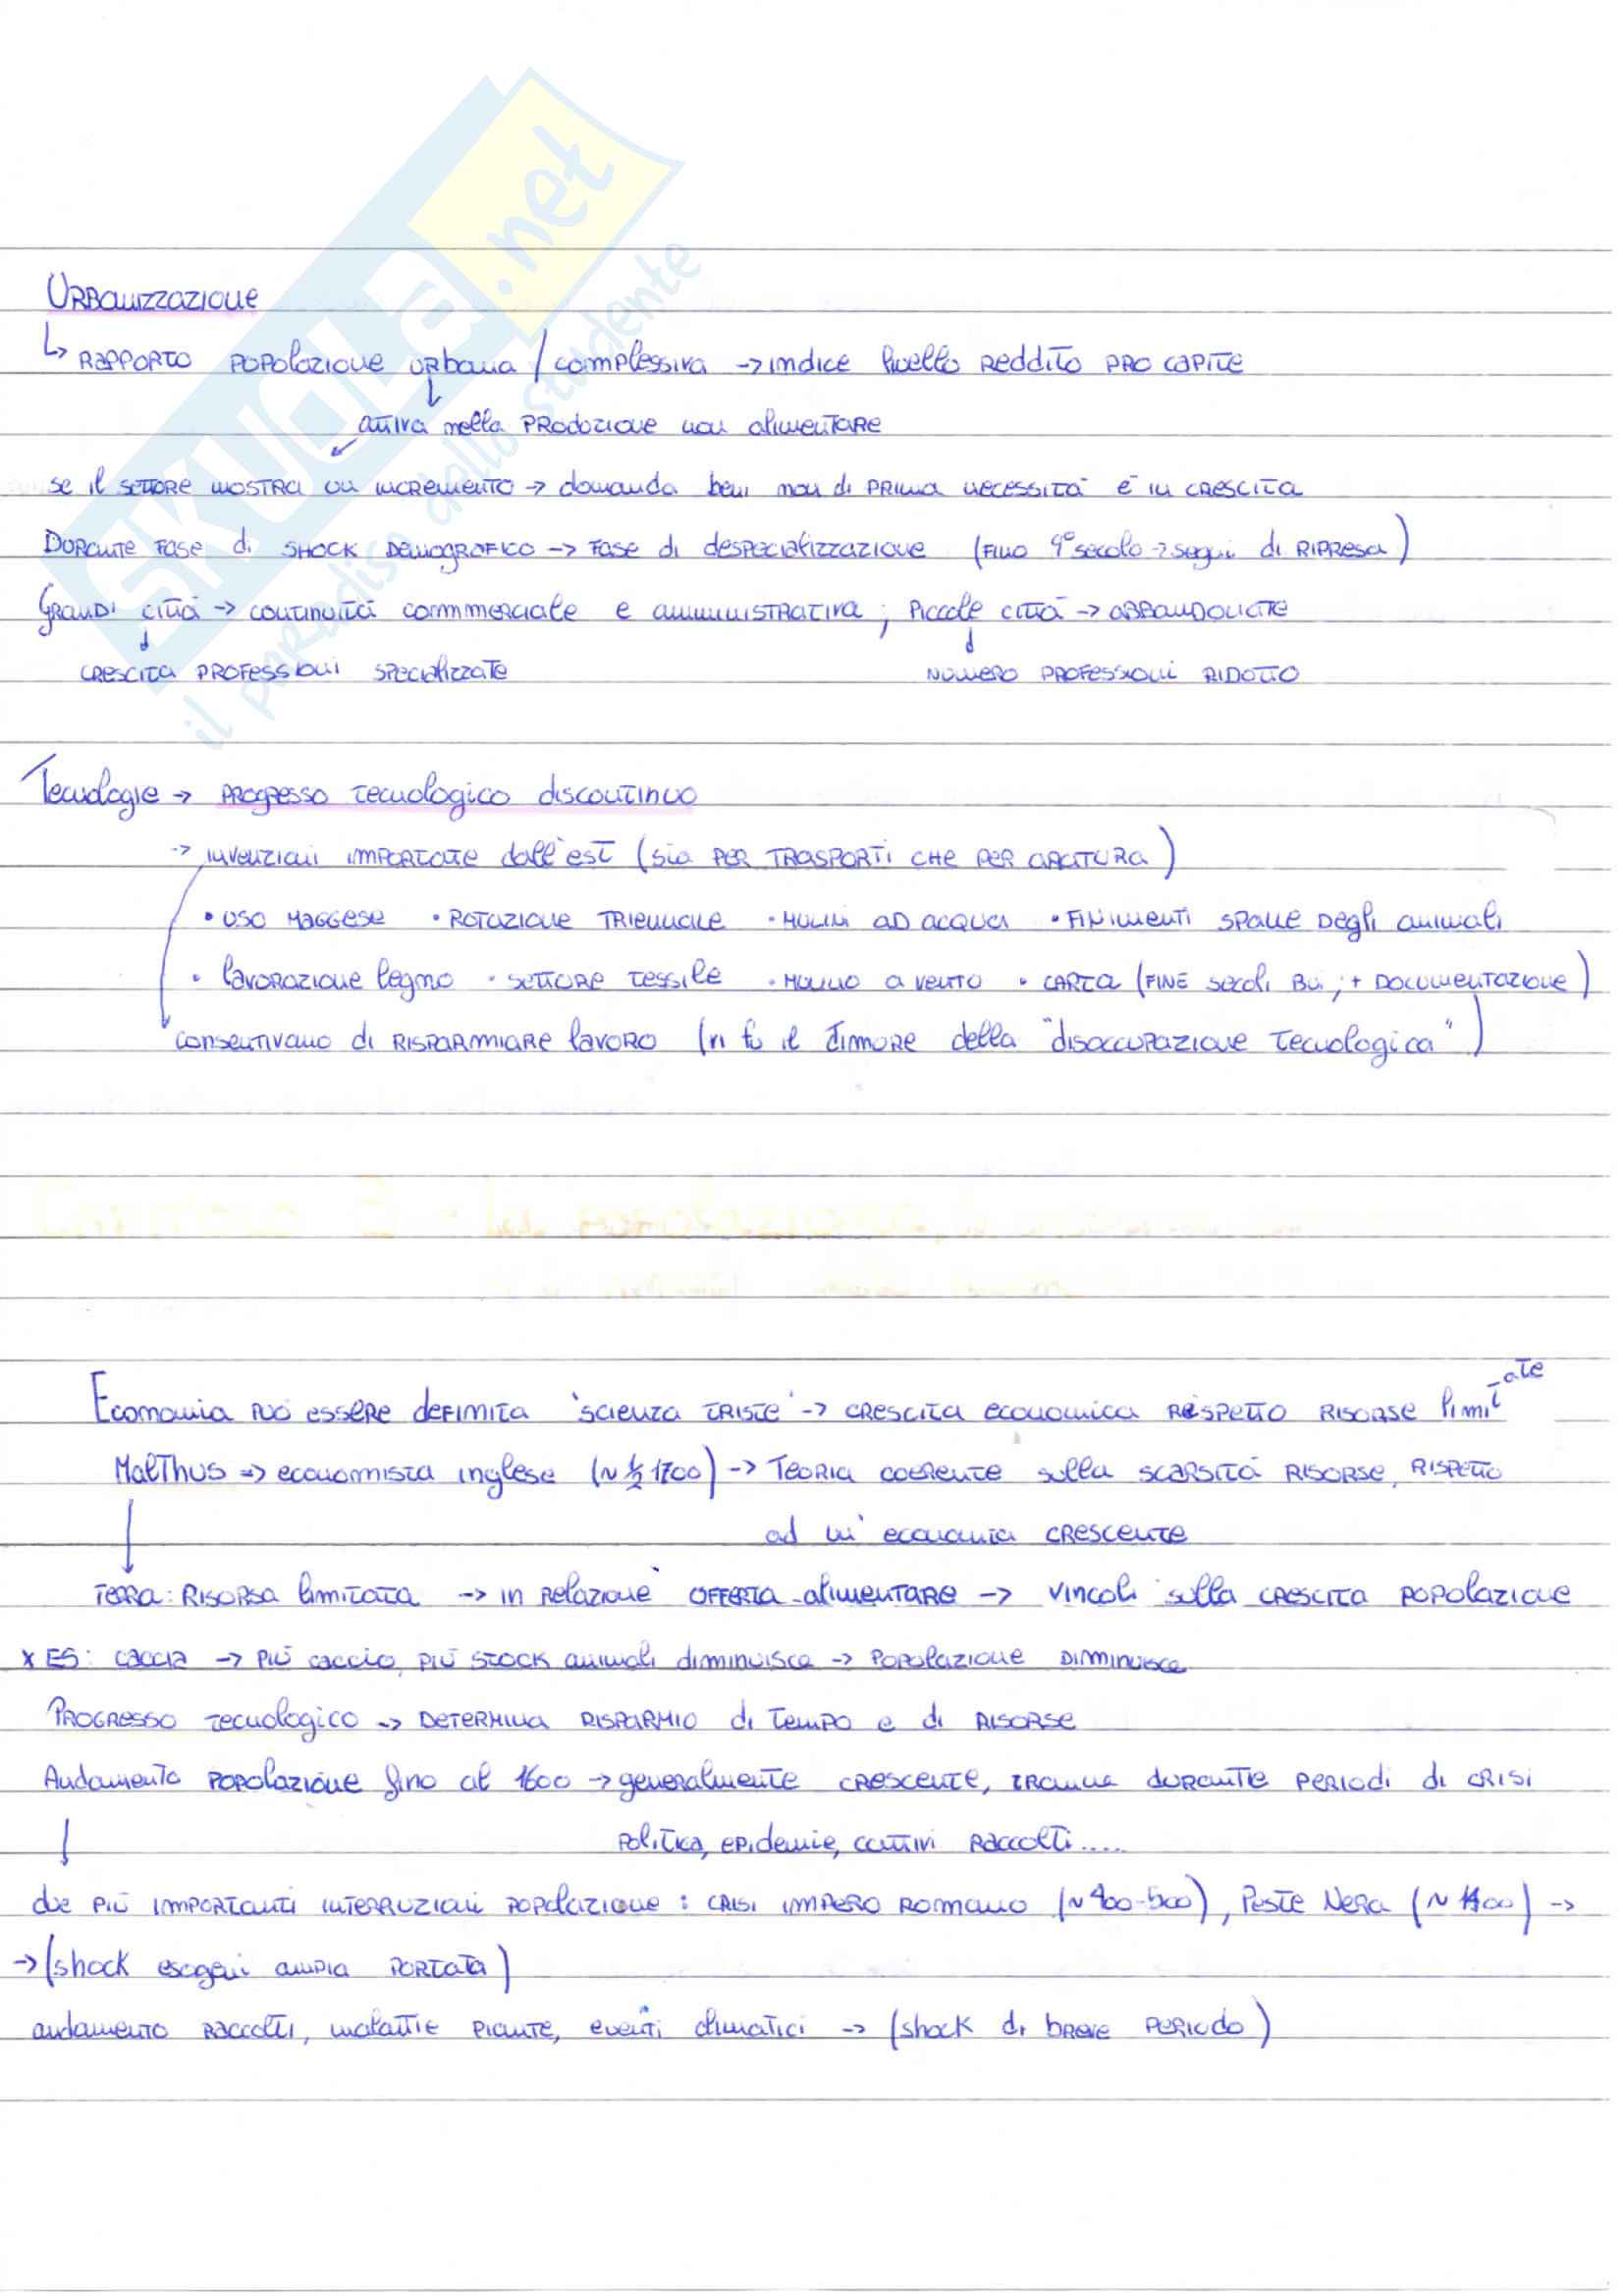 SKUOLA.net
il paradiso dello studente
Urbanizzazione
↳ Rapporto popolazione urbana / complessiva → indice livello reddito pro capite
↓
attiva nella produzione non alimentare
se il settore mostra un incremento → domanda beni non di prima necessità è in crescita
Durante fase di shock demografico → fase di despecializzazione (fino 9° secolo → segni di ripresa)
Grandi città → continuità commmerciale e amministrativa ; piccole città → abbandonate
↓ ↓
crescita professioni specializzate numero professioni ridotto
Tecnologie → progresso tecnologico discontinuo
→ invenzioni importate dall'est (sia per trasporti che per aratura)
• uso maggese • rotazione triennale • mulini ad acqua • finimenti spalle degli animali
• lavorazione legno • settore tessile • mulino a vento • carta (fine secoli bui ; + documentazione)
consentivano di risparmiare lavoro (vi fu il timore della "disoccupazione tecnologica")
Economia può essere definita 'scienza triste' → crescita economica rispetto risorse limitate
Malthus → economista inglese (~ ½ 1700) → Teoria coerente sulla scarsità risorse, rispetto
ad un' economia crescente
Terra: risorsa limitata → in relazione offerta alimentare → vincoli sulla crescita popolazione
x ES: caccia → più caccio, più stock animali diminuisce → popolazione diminuisce
Progresso tecnologico → determina risparmio di tempo e di risorse
Andamento popolazione fino al 1600 → generalmente crescente, tranne durante periodi di crisi
politica, epidemie, cattivi raccolti.....
↓
due più importanti interruzioni popolazione : crisi impero romano (~ 400-500), Peste Nera (~ ) →
→ (shock esogeni ampia portata)
andamento raccolti, malattie piante, eventi climatici → (shock di breve periodo)